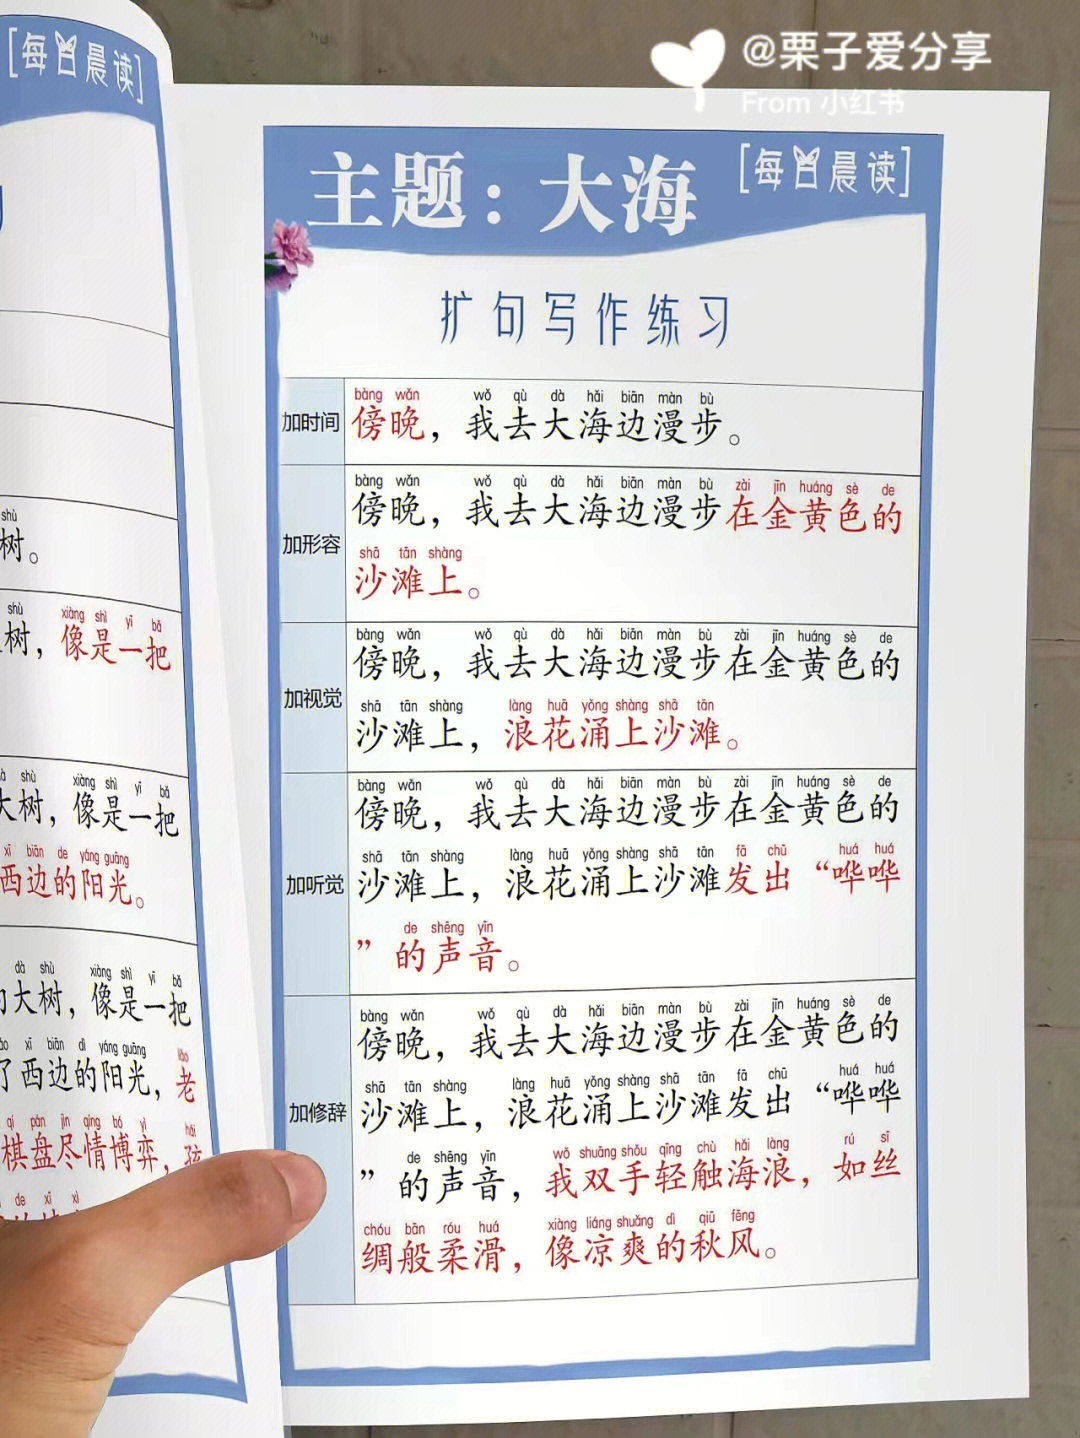 @栗子爱分享
From 小红书
[每日晨读]
shù
树。
shù xiàng shì yī bǎ
树，像是一把
shù xiàng shì yī bǎ
大树，像是一把
xī biān de yáng guāng
西边的阳光。
dà shù xiàng shì yī bǎ
大树，像是一把
xī biān dì yáng guāng lǎo
了西边的阳光，老
qí pán jìn qíng bó yì hái
棋盘尽情博弈，孩
de xī xì
[每日晨读]
主题：大海
扩句写作练习
bàng wǎn wǒ qù dà hǎi biān màn bù
加时间 傍晚，我去大海边漫步。
bàng wǎn wǒ qù dà hǎi biān màn bù zài jīn huáng sè de
傍晚，我去大海边漫步在金黄色的
加形容
shā tān shàng
沙滩上。
bàng wǎn wǒ qù dà hǎi biān màn bù zài jīn huáng sè de
傍晚，我去大海边漫步在金黄色的
加视觉
shā tān shàng làng huā yǒng shàng shā tān
沙滩上，浪花涌上沙滩。
bàng wǎn wǒ qù dà hǎi biān màn bù zài jīn huáng sè de
傍晚，我去大海边漫步在金黄色的
shā tān shàng làng huā yǒng shàng shā tān fā chū huá huá
加听觉 沙滩上，浪花涌上沙滩发出“哗哗
de shēng yīn
”的声音。
bàng wǎn wǒ qù dà hǎi biān màn bù zài jīn huáng sè de
傍晚，我去大海边漫步在金黄色的
shā tān shàng làng huā yǒng shàng shā tān fā chū huá huá
加修辞 沙滩上，浪花涌上沙滩发出“哗哗
de shēng yīn wǒ shuāng shǒu qīng chù hǎi làng rú sī
”的声音，我双手轻触海浪，如丝
chóu bān róu huá xiàng liáng shuǎng dì qiū fēng
绸般柔滑，像凉爽的秋风。